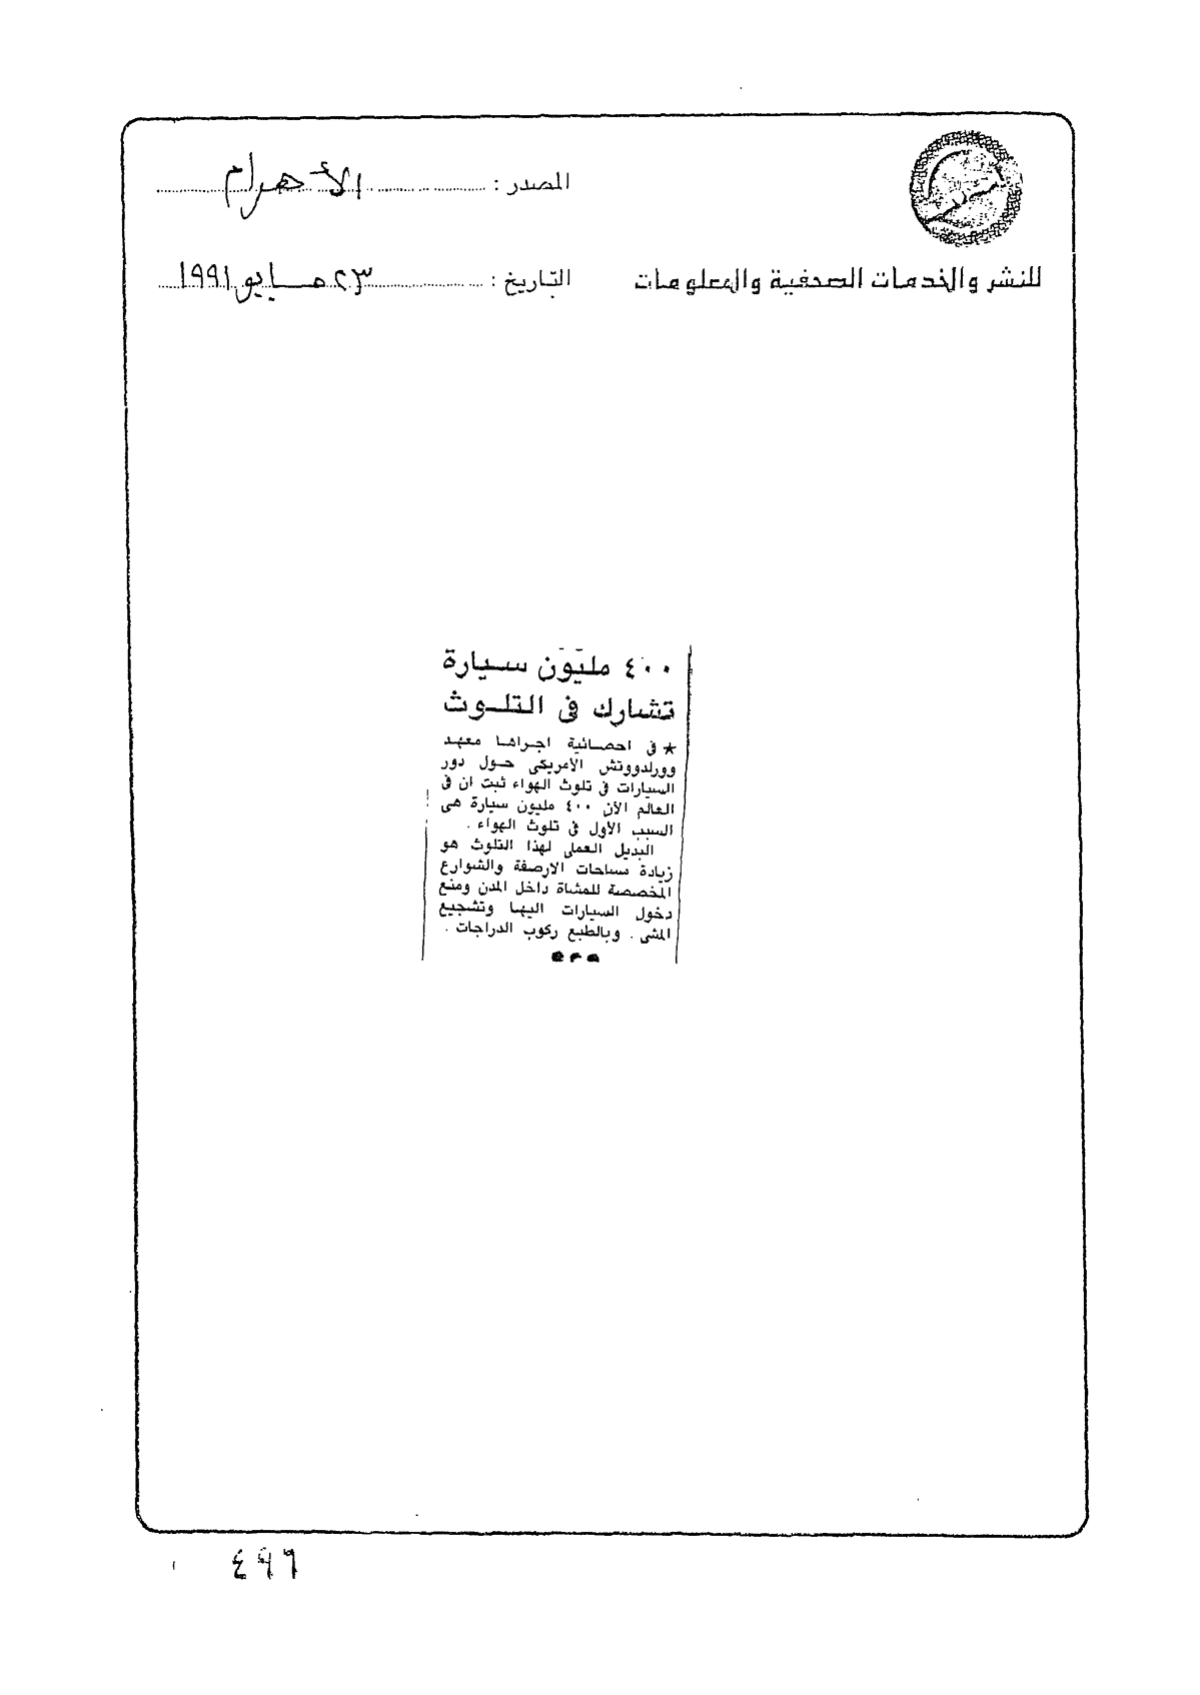 المصدر : الأهرام
للنشر والخدمات الصحفية والمعلومات
التاريخ : ٢٣ مايو ١٩٩١
٤٠٠ مليون سيارة
تشارك فى التلوث
★ فى احصائية اجراها معهد
وورلدووتش الأمريكى حول دور
السيارات فى تلوث الهواء ثبت ان فى
العالم الآن ٤٠٠ مليون سيارة هى
السبب الأول فى تلوث الهواء .
البديل العملى لهذا التلوث هو
زيادة مساحات الارصفة والشوارع
المخصصة للمشاة داخل المدن ومنع
دخول السيارات اليها وتشجيع
المشى . وبالطبع ركوب الدراجات .